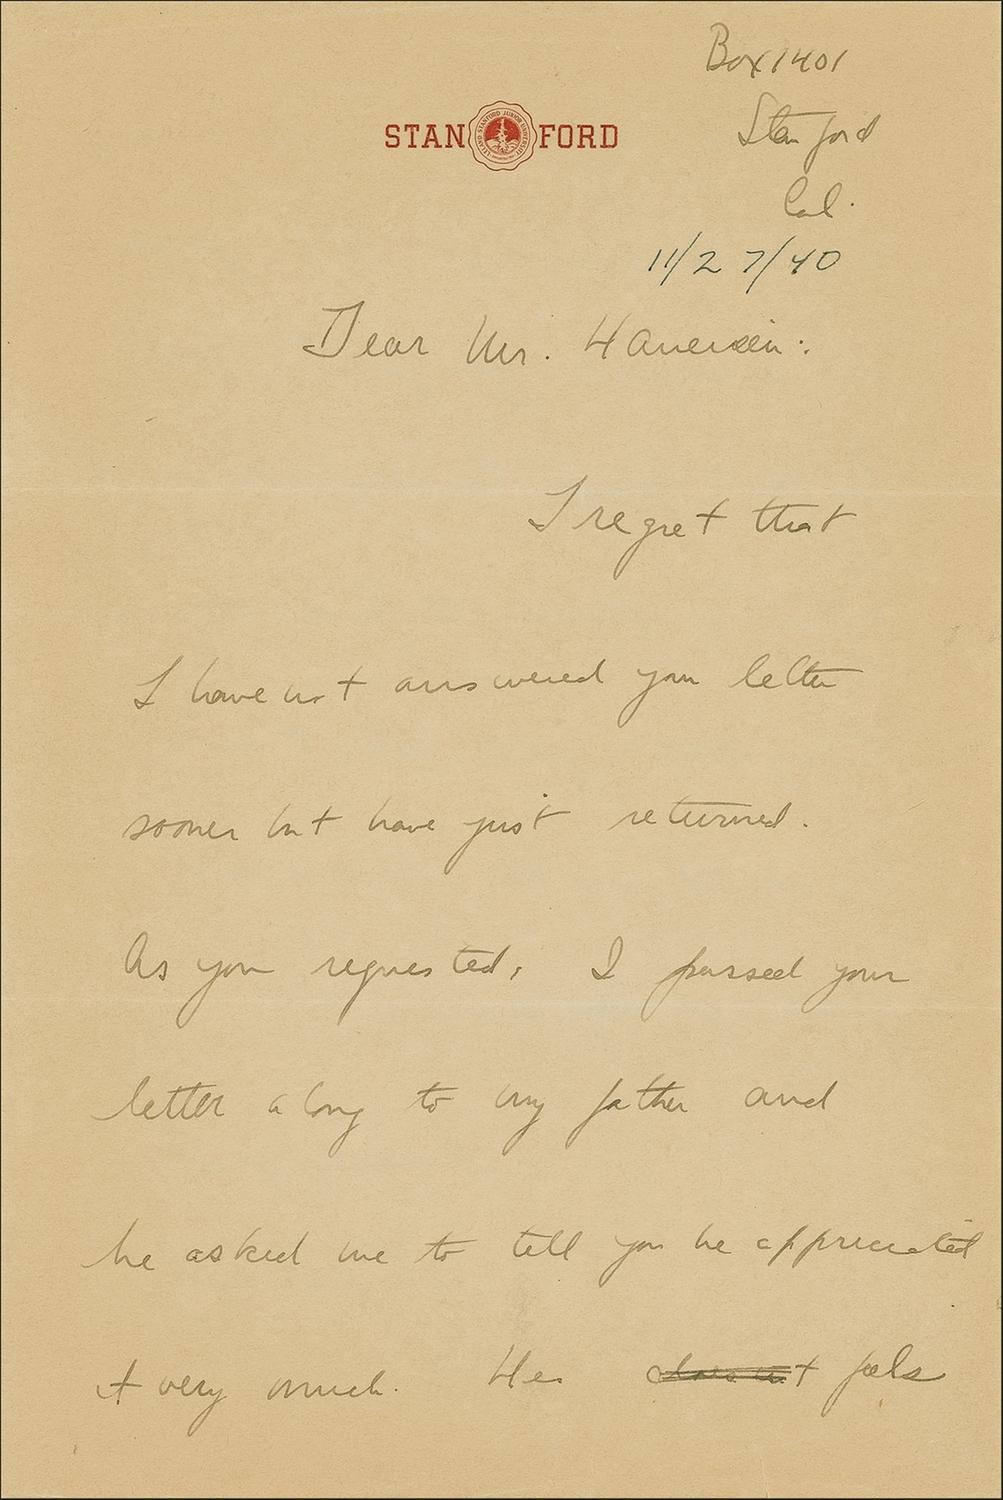 Box 1401
STANFORD
Stanford
Cal.
11/27/40
Dear Mr.
I regret that
I have not answered your letter
sooner but have just returned.
As you requested, I passed your
letter along to my father and
he asked me to tell you he appreciated
it very much. He feels